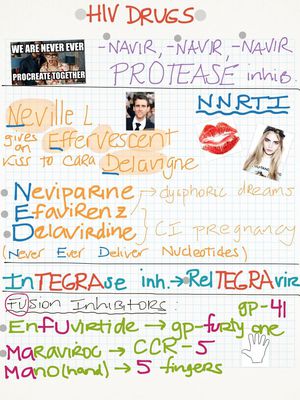 HIV DRUGS
WE ARE NEVER EVER
PROCREATE TOGETHER
-NAVIR, -NAVIR, -NAVIR
PROTEASE inhib.
NNRTI
Neville L
gives an Effervescent
Kiss to Cara Delavigne
Neviparine → dysphoric dreams
Efavirenz
Delavirdine } CI pregnancy
(Never Ever Deliver Nucleotides)
InTEGRAse inh. → RelTEGRAvir
FUsion InhibitOrs:
gp-41
EnFUvirtide → gp-furty one
MaRaviroc → CCR-5
MaNo(hand) → 5 fingers